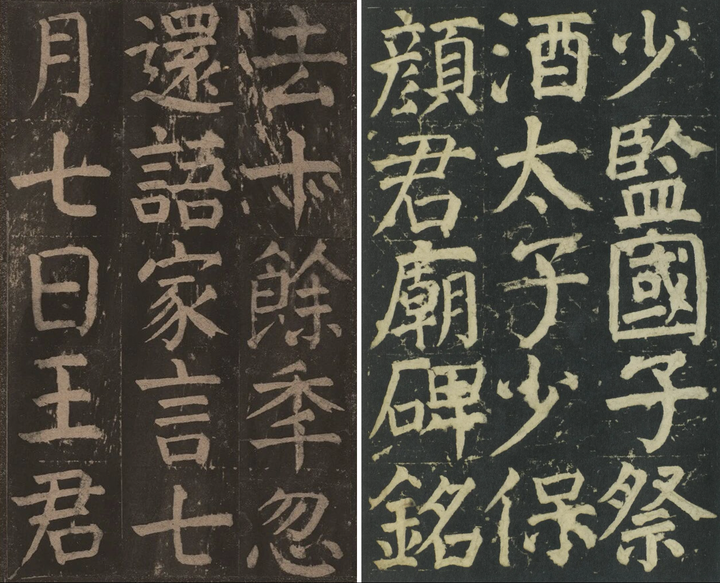 去十餘年忽
還語家言七
月七日王君
少監國子祭
酒太子少保
顔君廟碑銘